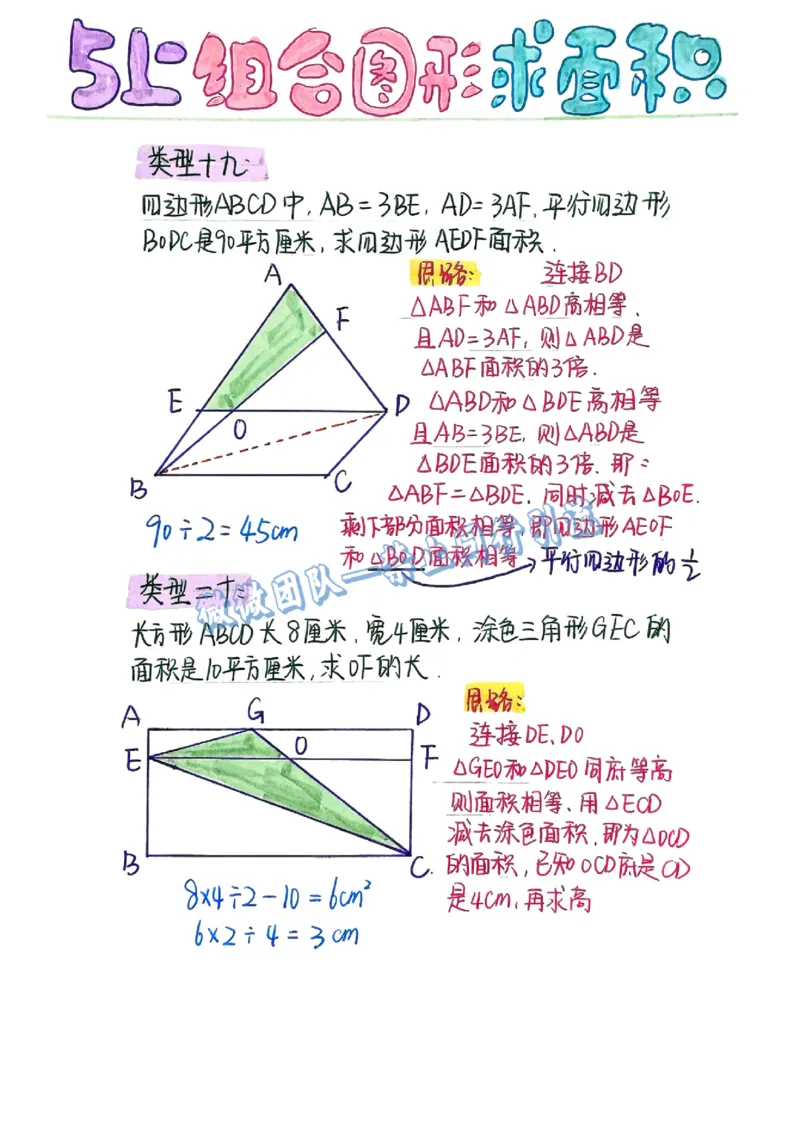 5上组合图形求面积
类型十九:
四边形ABCD中,AB=3BE,AD=3AF,平行四边形
BODC是90平方厘米,求四边形AEDF面积.
思路: 连接BD
△ABF和△ABD高相等,
且AD=3AF,则△ABD是
△ABF面积的3倍.
△ABD和△BDE高相等
且AB=3BE,则△ABD是
△BDE面积的3倍.即:
△ABF=△BDE,同时减去△BOE.
剩下部分面积相等,即四边形AEOF
和△BOD面积相等→平行四边形的½
A
F
E
O
D
B
C
90÷2=45cm
类型二十:
长方形ABCD长8厘米,宽4厘米,涂色三角形GEC的
面积是10平方厘米,求OF的长.
思路:
连接DE、DO
△GEO和△DEO同底等高
则面积相等、用△ECD
减去涂色面积,即为△OCD
的面积,已知OCD底是CD
是4cm,再求高
A
G
D
E
O
F
B
C
8×4÷2-10=6cm²
6×2÷4=3cm